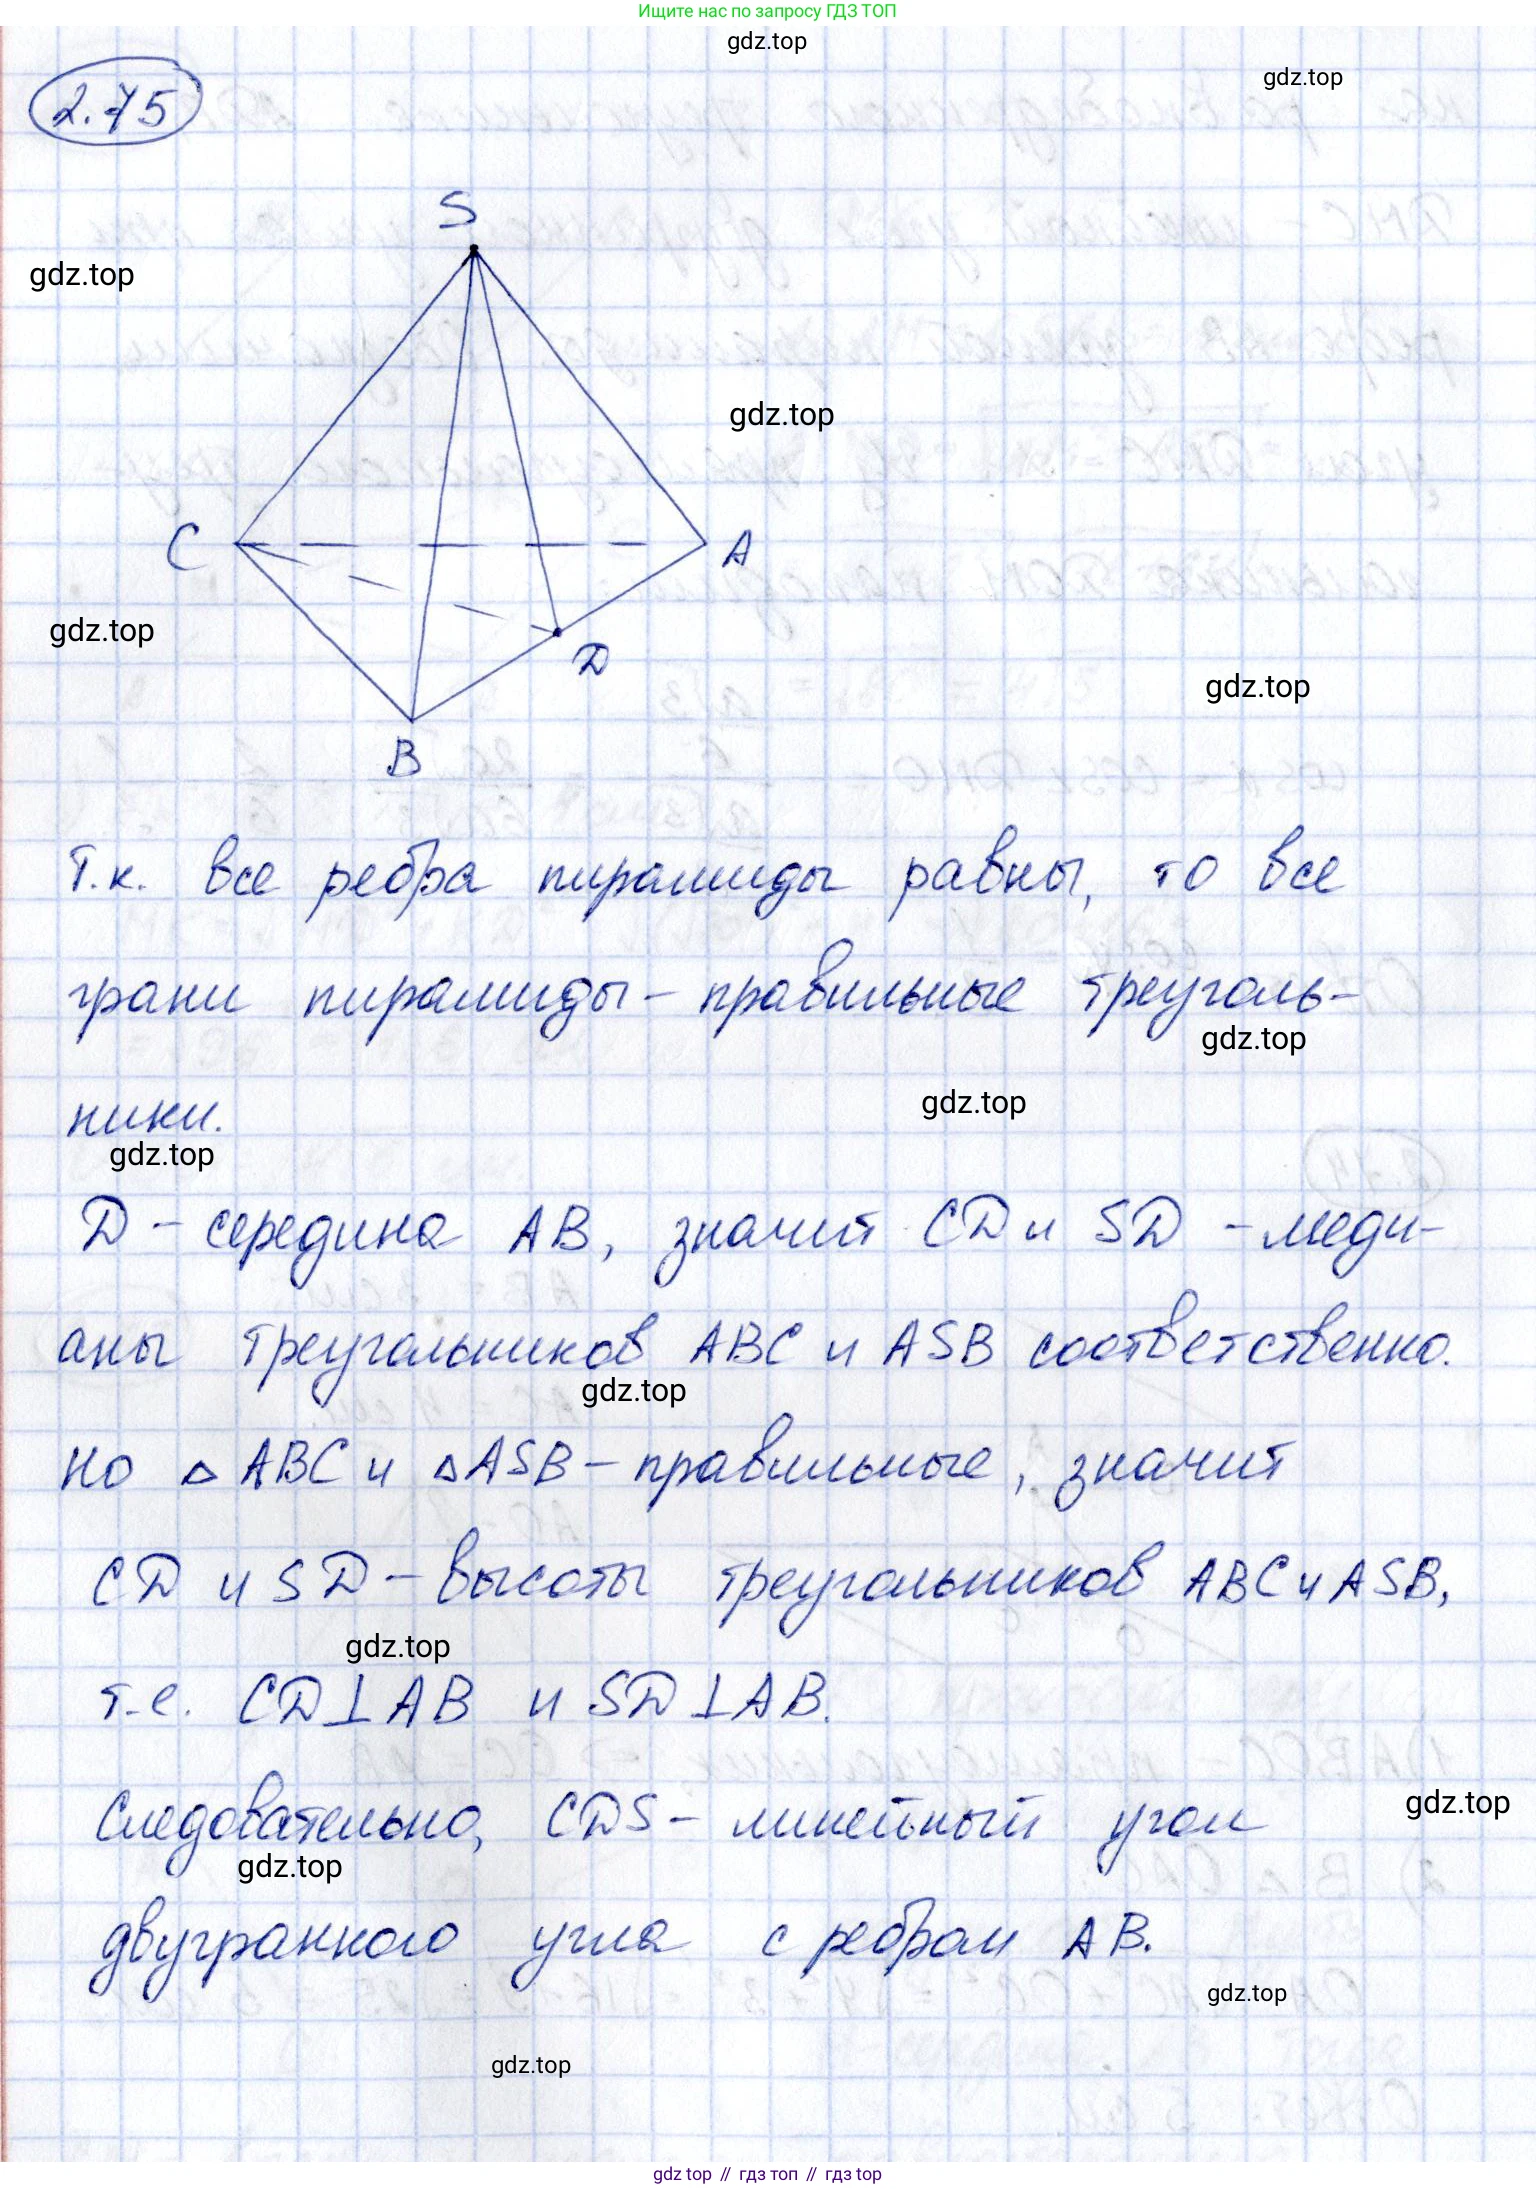 Ищите нас по запросу ГДЗ ТОП
gdz.top
gdz.top
2.75
S
gdz.top
gdz.top
C
A
gdz.top
D
gdz.top
B
Т.к. все ребра пирамиды равны, то все
грани пирамиды – правильные треуголь-
gdz.top
ники.
gdz.top
gdz.top
D – середина AB, значит CD и SD – меди-
аны треугольников ABC и ASB соответственно.
gdz.top
Но △ ABC и △ ASB – правильные, значит
CD и SD – высоты треугольников ABC и ASB,
gdz.top
т.е. CD⊥AB и SD⊥AB.
Следовательно, CDS – линейный угол
gdz.top
gdz.top
двугранного угла с ребром AB.
gdz.top
gdz.top
gdz top // гдз топ // гдз top